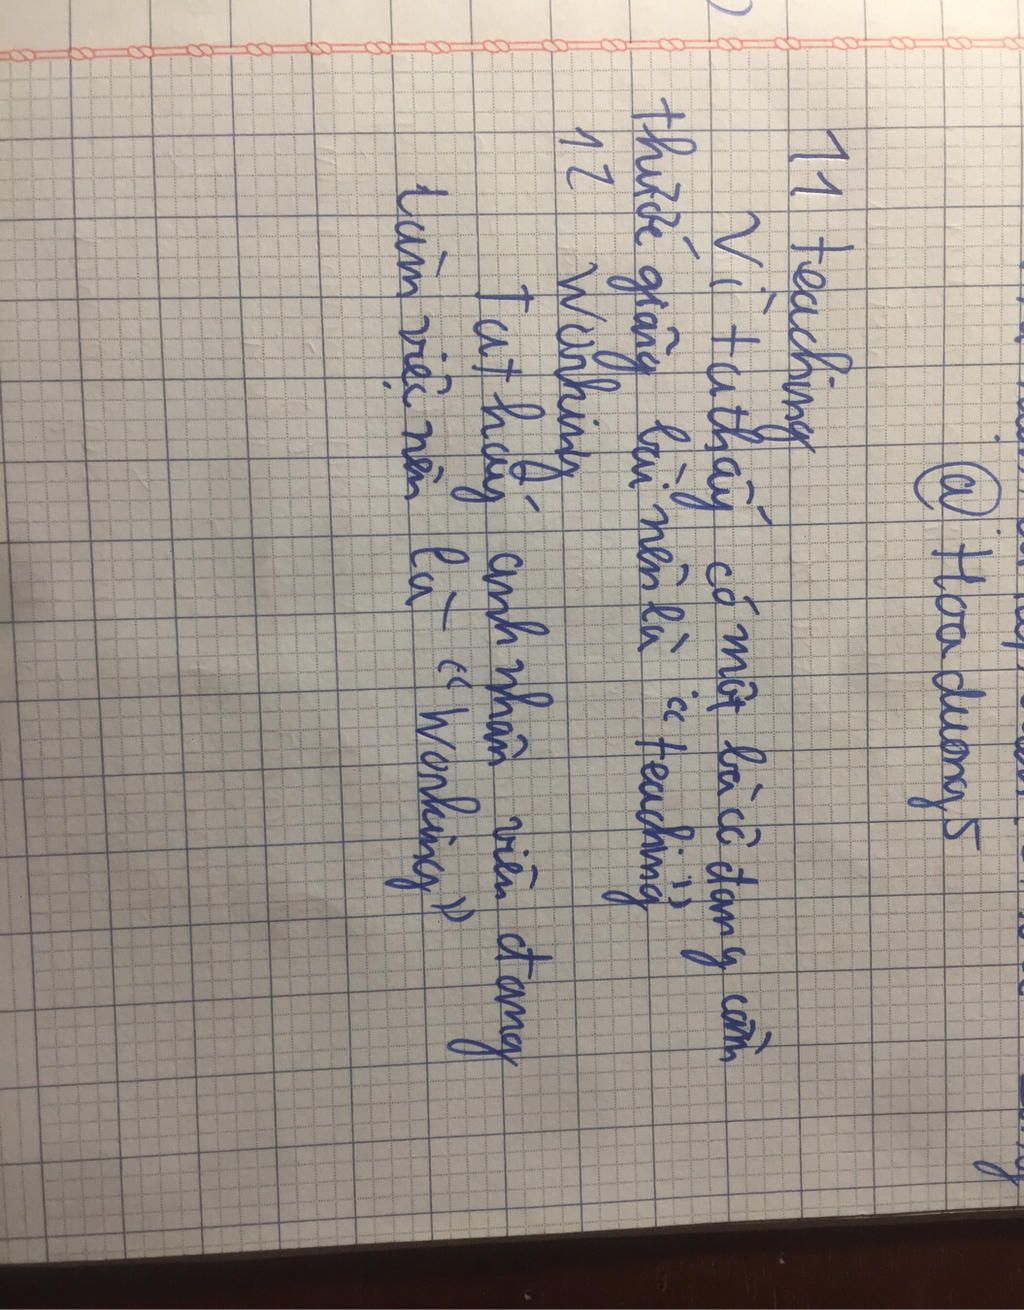 @ Hoa duong 5
11 teaching
Vì ta thấy có một bà cô đang cầm
thước giảng bài nên là “teaching”
12 Working
Ta thấy anh nhân viên đang
Làm việc nên là “Working”